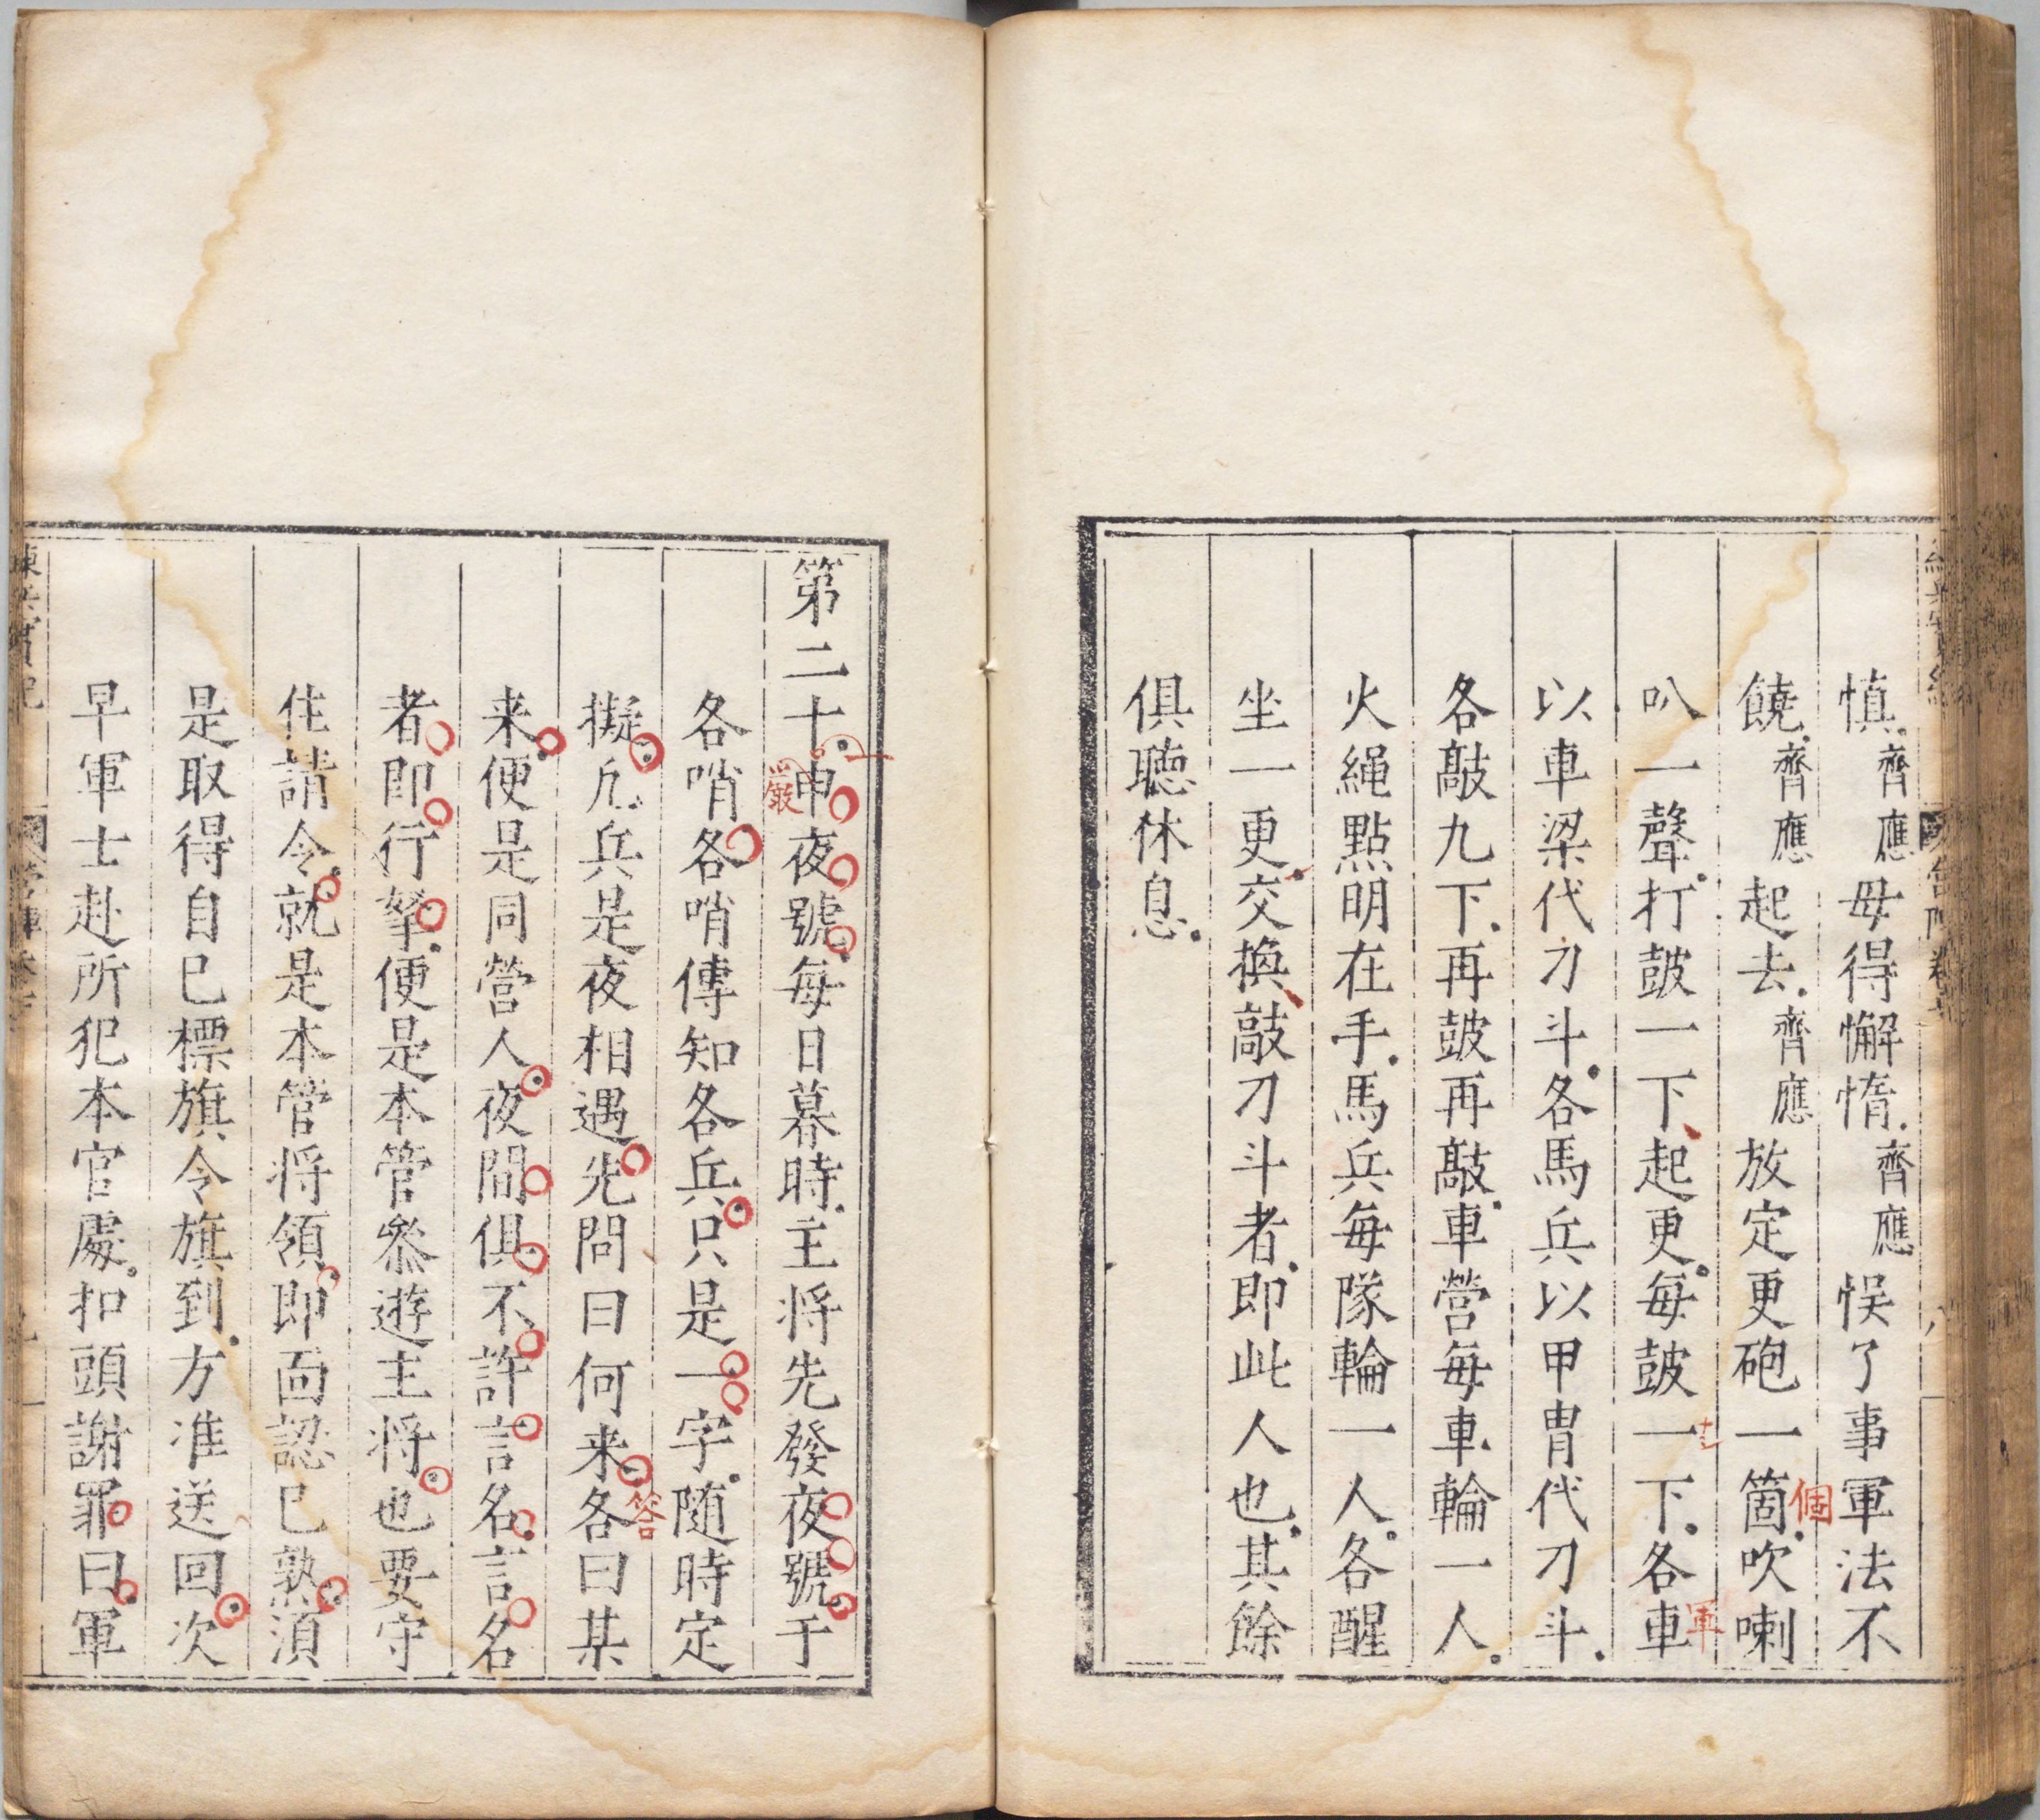 慎齊應毋得懈惰齊應悞了事軍法不
饒齊應起去齊應放定更砲一箇吹喇
個
叭一聲打皷一下起更每皷一下各車
軍
以車梁代刀斗各馬兵以甲冑代刀斗
各敲九下再皷再敲車營每車輪一人
火繩點明在手馬兵每隊輪一人各醒
坐一更交換敲刀斗者即此人也其餘
俱聽休息
第二十申夜號每日暮時主将先發夜號于
嚴
各哨各哨傳知各兵只是一字随時定
擬凢兵是夜相遇先問曰何来各曰某
答
来便是同營人夜間俱不許言名言名
者即行拏便是本管叅遊主将也要守
住請令就是本管将領即面認已熟湏
是取得自已標旗令旗到方准送回次
早軍士赴所犯本官處扣頭謝罪曰軍